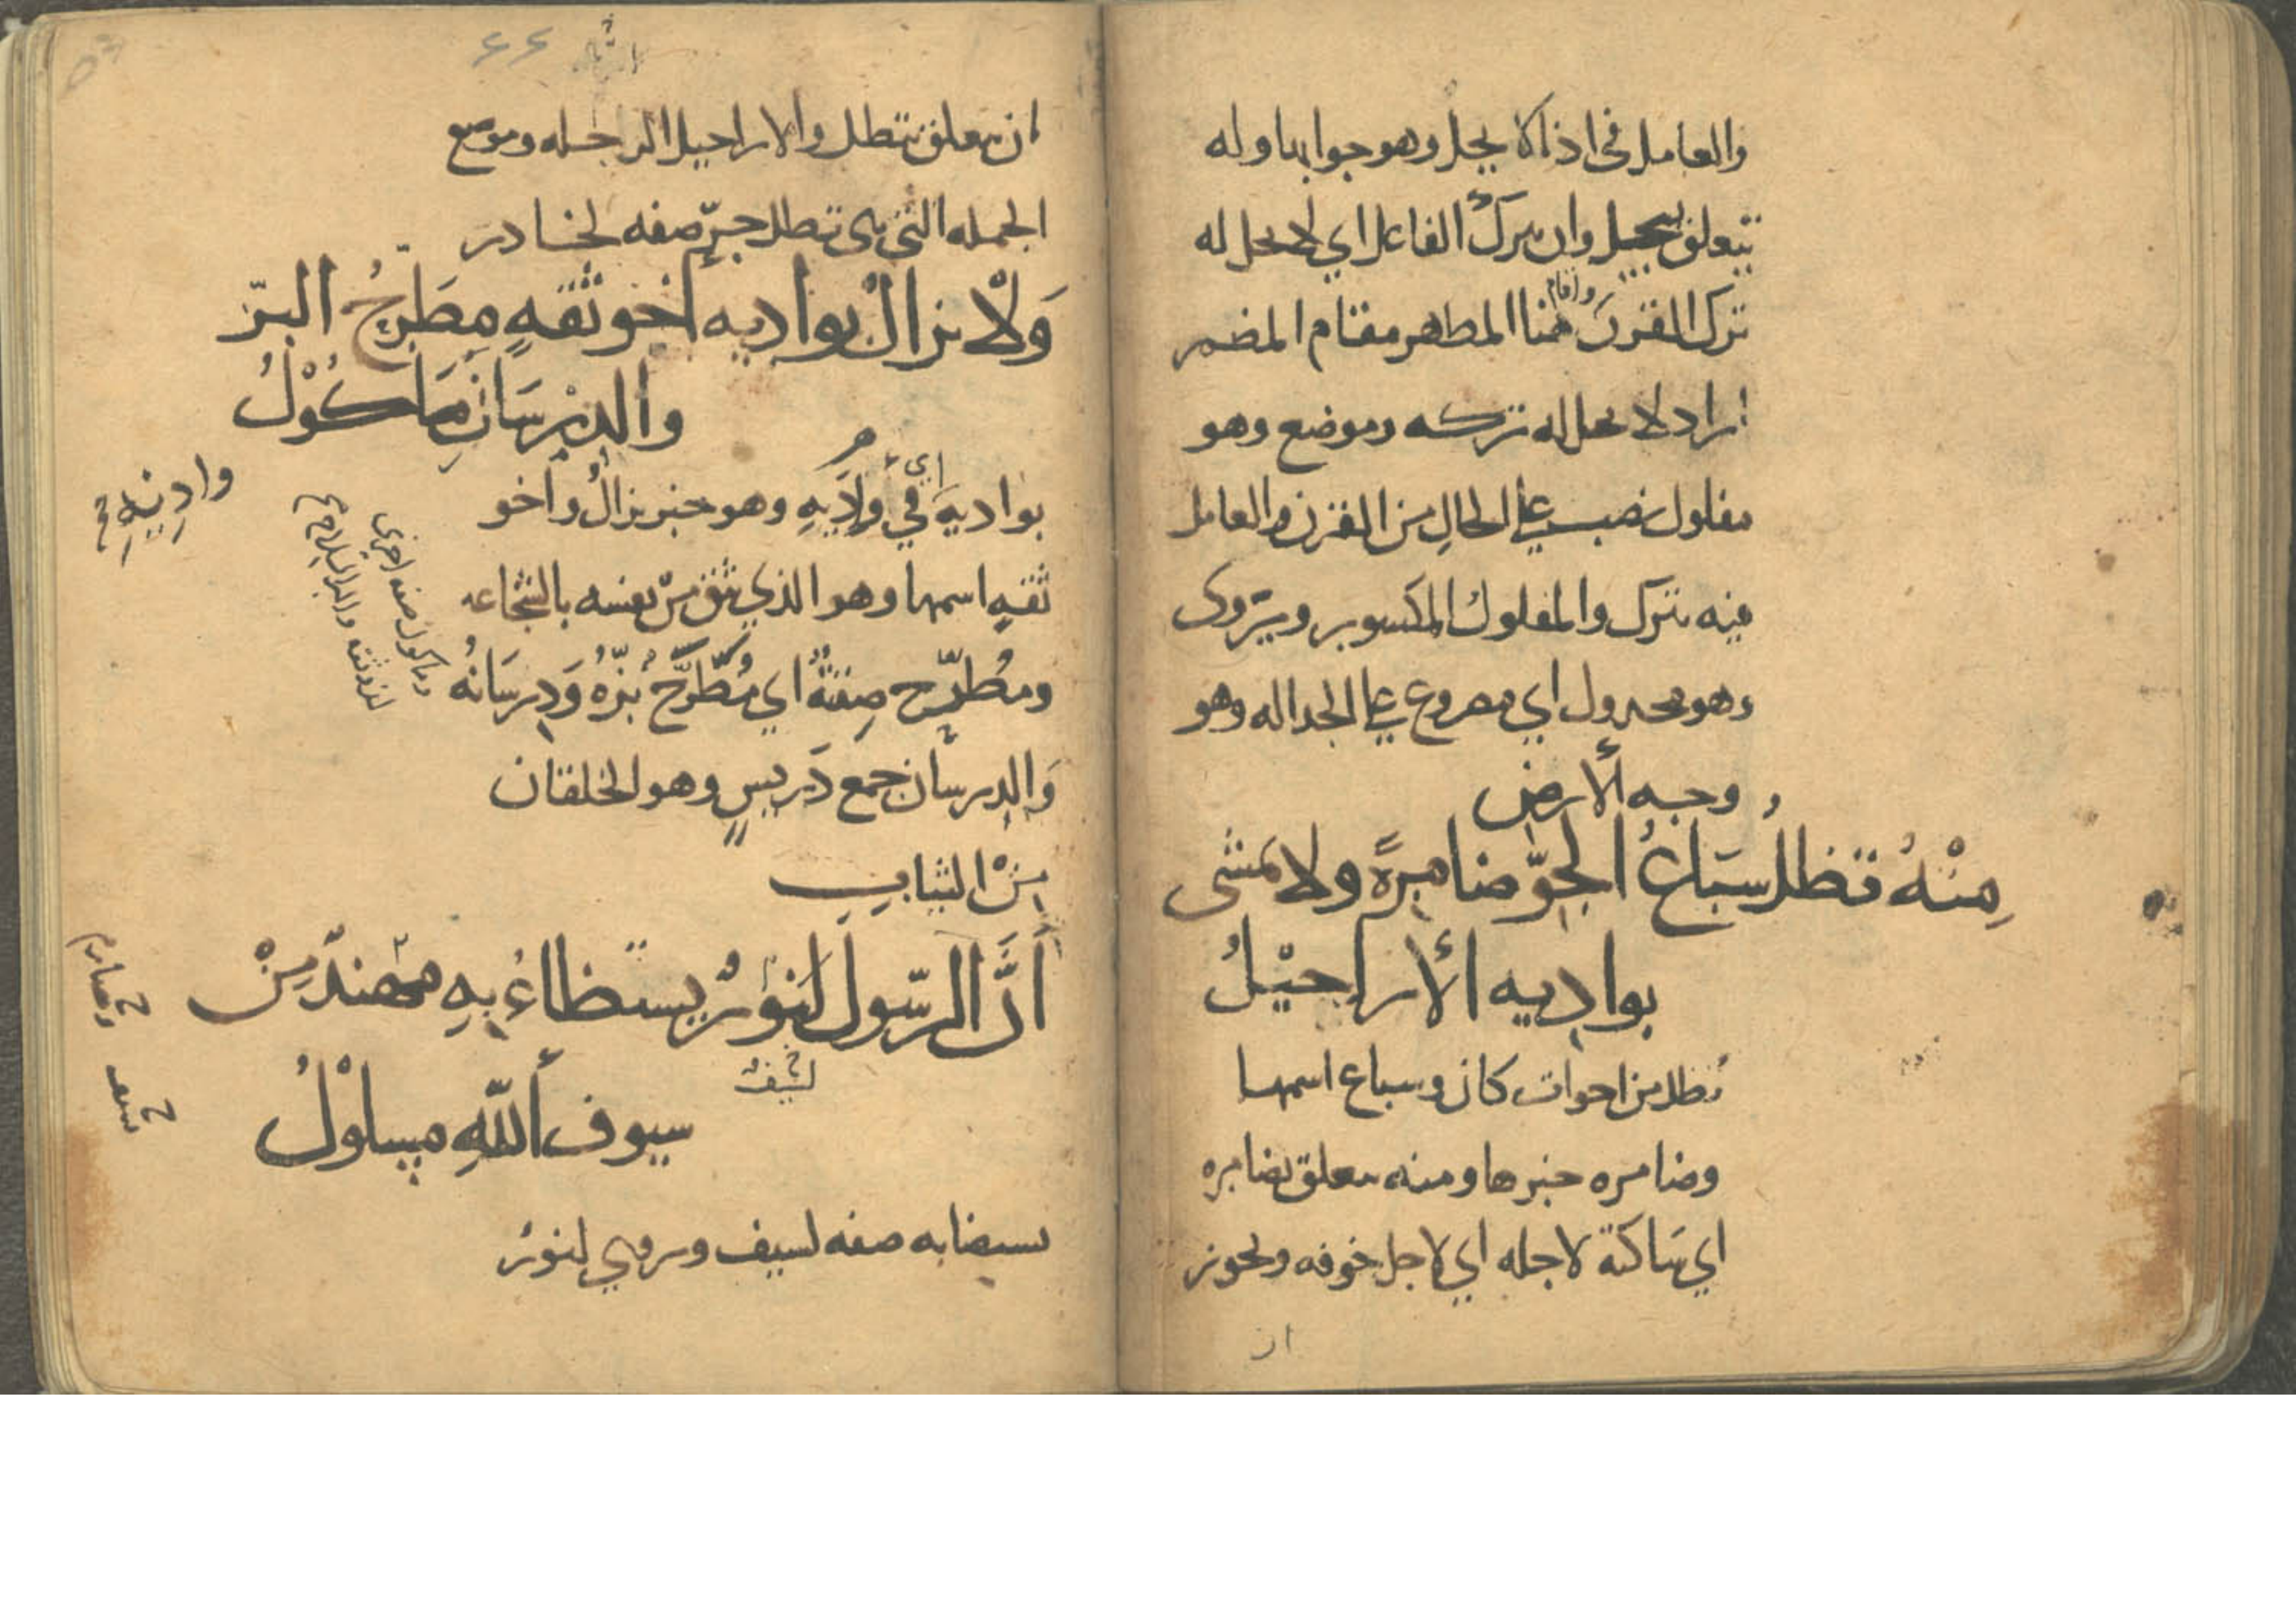 والعامل في اذا لا يحل وهو جوابها وله
يتعلق بيحل وان يترك الفاعل اي لا يحل له
ترك القرن واقام هنا المظهر مقام المضمر
اراد لا يحل له تركه وموضع وهو
مفلول نصب على الحال من القرن والعامل
فيه يترك والمفلول المكسور ويروى
وهو مجدول اي مصروع على الجداله وهو
وجه الارض
مِنْهُ تظلُ سِبَاعُ الجَوِّ ضامِرةً ولا تمشى
بواديه الأراجيْلُ
تظل من اخوات كان وسباع اسمها
وضامره خبرها ومنه يتعلق بضامره
اي ساكنة لاجله اي لاجل خوفه ويجوز
ان
٤٤
ان يتعلق بتظل والاراجيل الرجاله وموضع
الجمله التي هي تظل جرّ صفه لخادر
وَلا يزالُ بواديه اخو ثقهٍ مِطَرَّحُ البزّ
والدِرْسَانِ مَاكُوْلُ
بواديه اي في واديه وهو خبر يزالُ واخو
ثقهٍ اسمها وهو الذي يثق من نفسه بالشجاعه
ومُطرّح صِفةٌ اي مُطَرَّحٌ بُزّهُ وَدِرسَانُهُ
وماكول صفه اخرى
وَالدرسان جمع دَرِيسٍ وهو الخلقان
مِنْ الثيابِ
أنَّ الرّسولَ لنورٌ يستظاءُ بهِ مهندٌ مِنْ
لسيفٌ
سيوف اللهِ مسلوْلُ
يستضا به صفه لسيف وروي لنورٌ